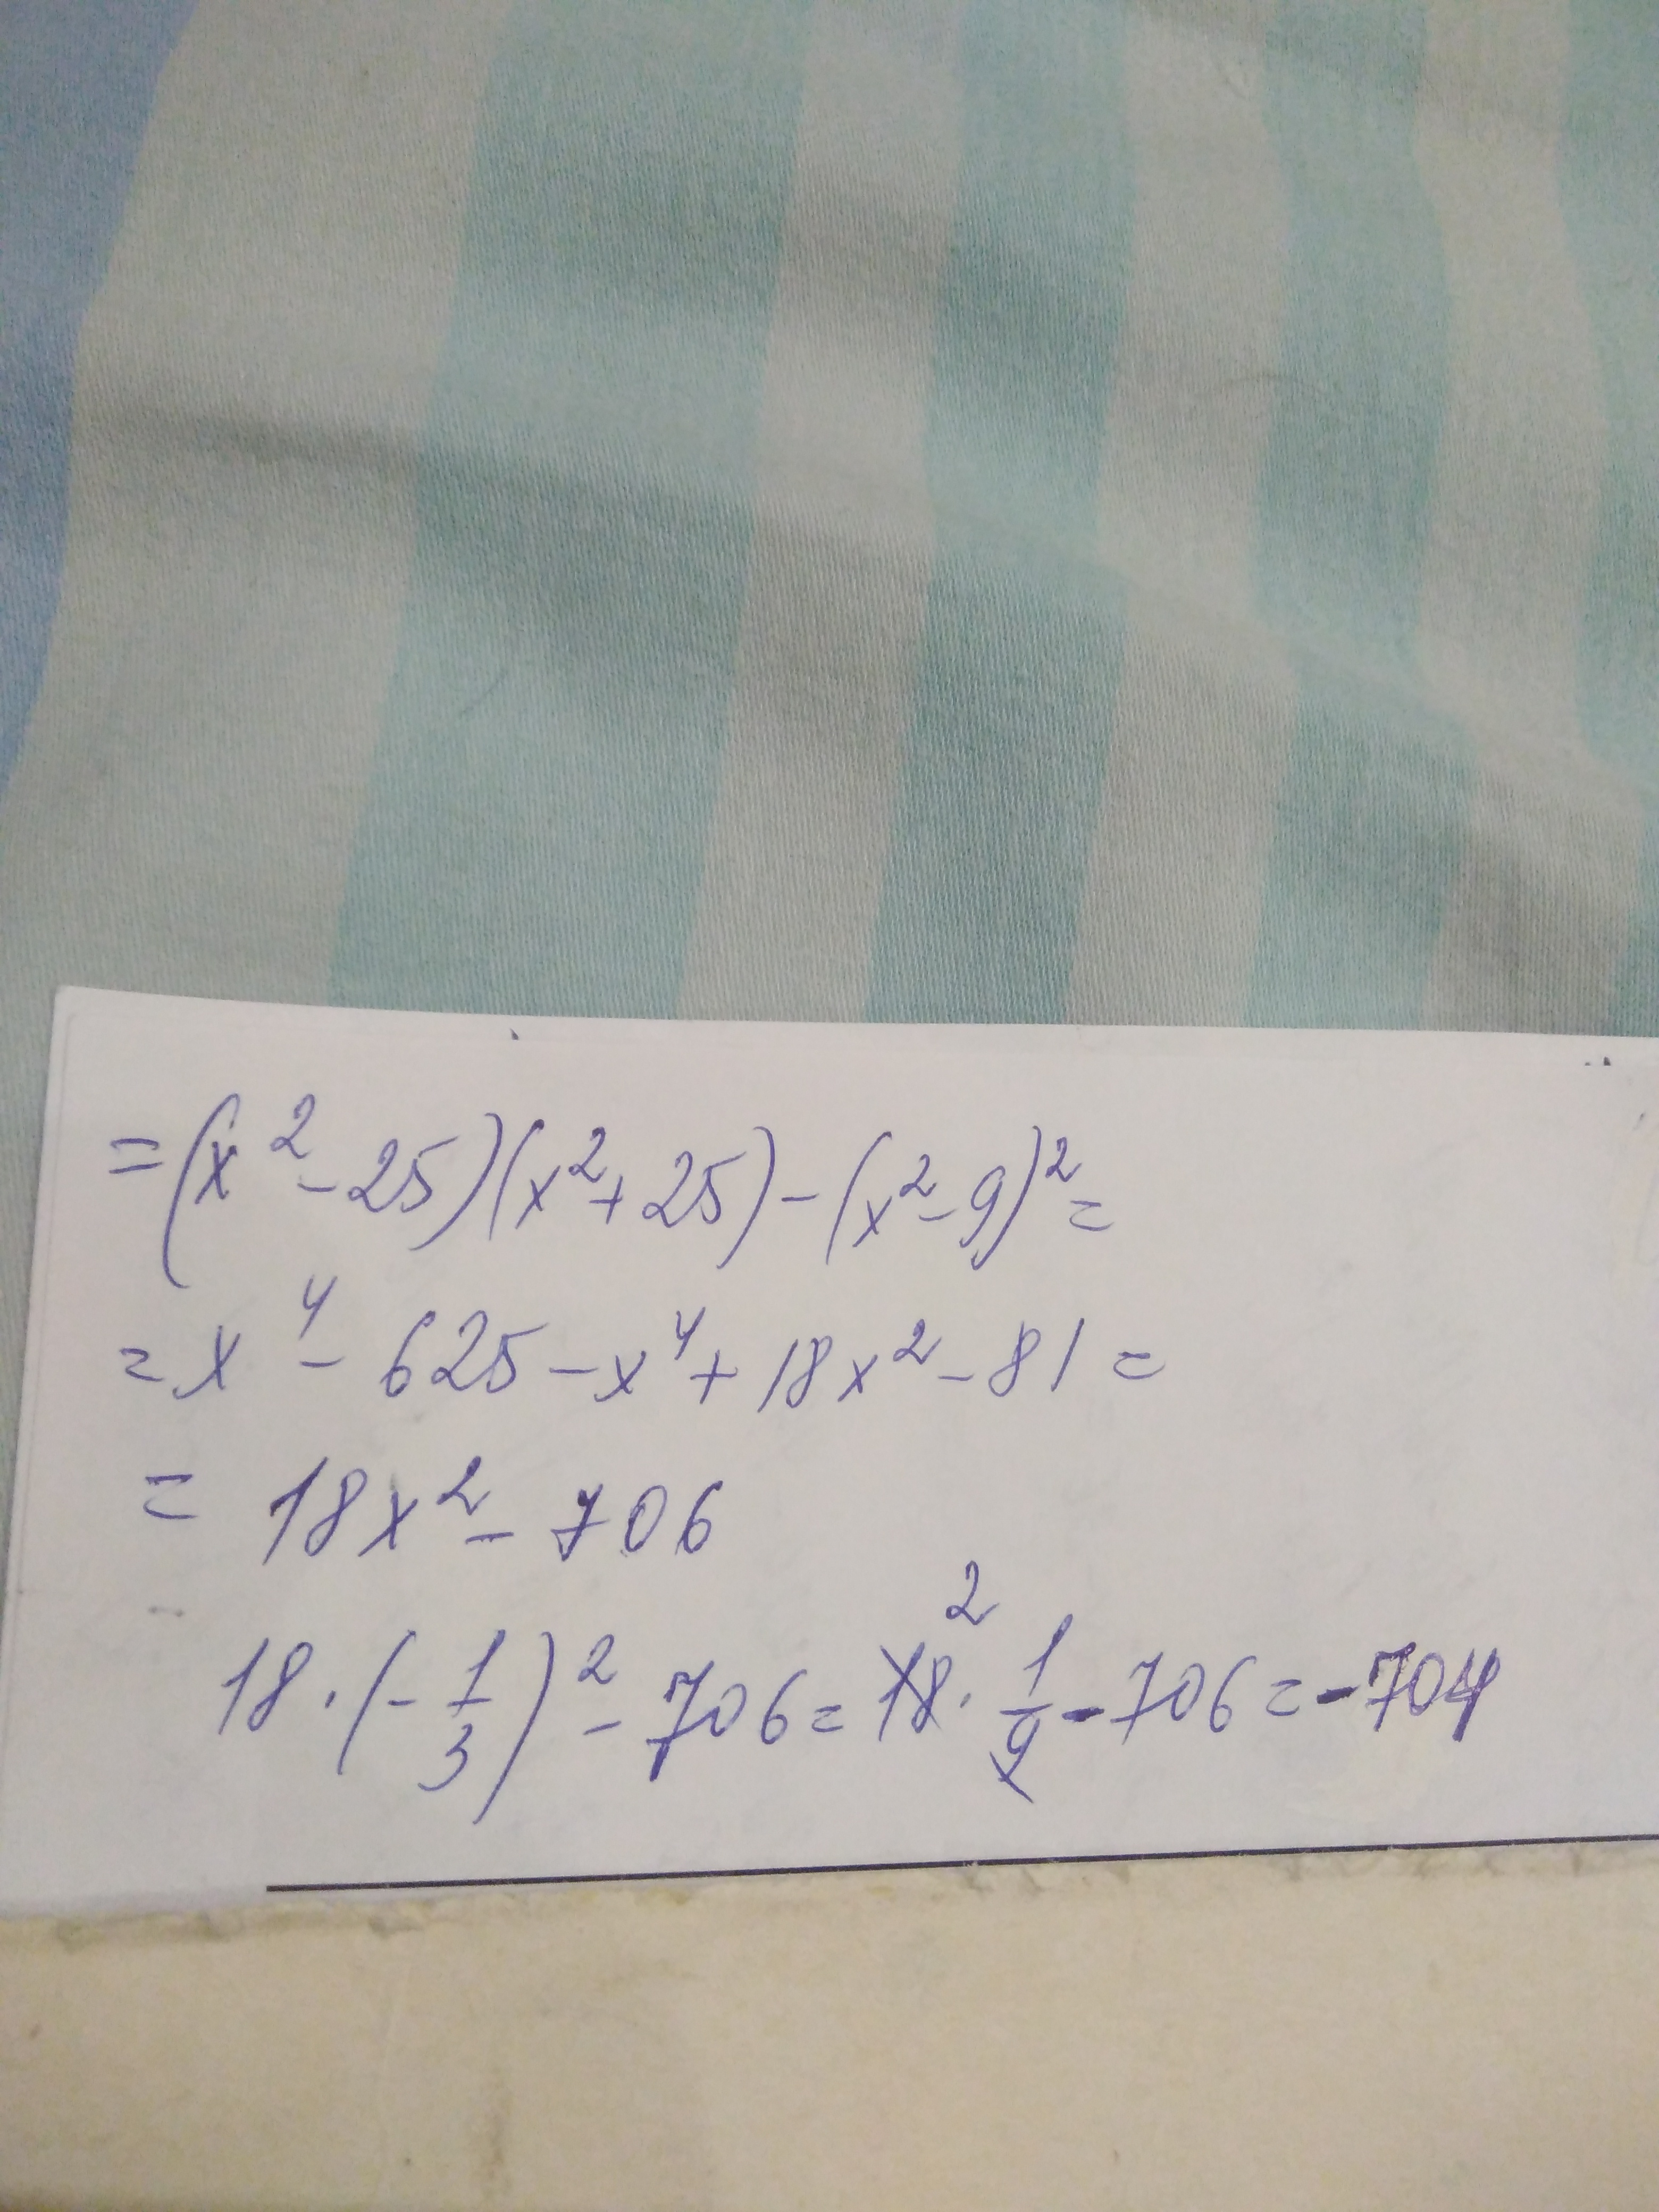 =(x²-25)(x²+25)-(x²-9)²=
=x⁴-625-x⁴+18x²-81=
= 18x²-706
18·(-1/3)²-706=18²·1/9-706=-704